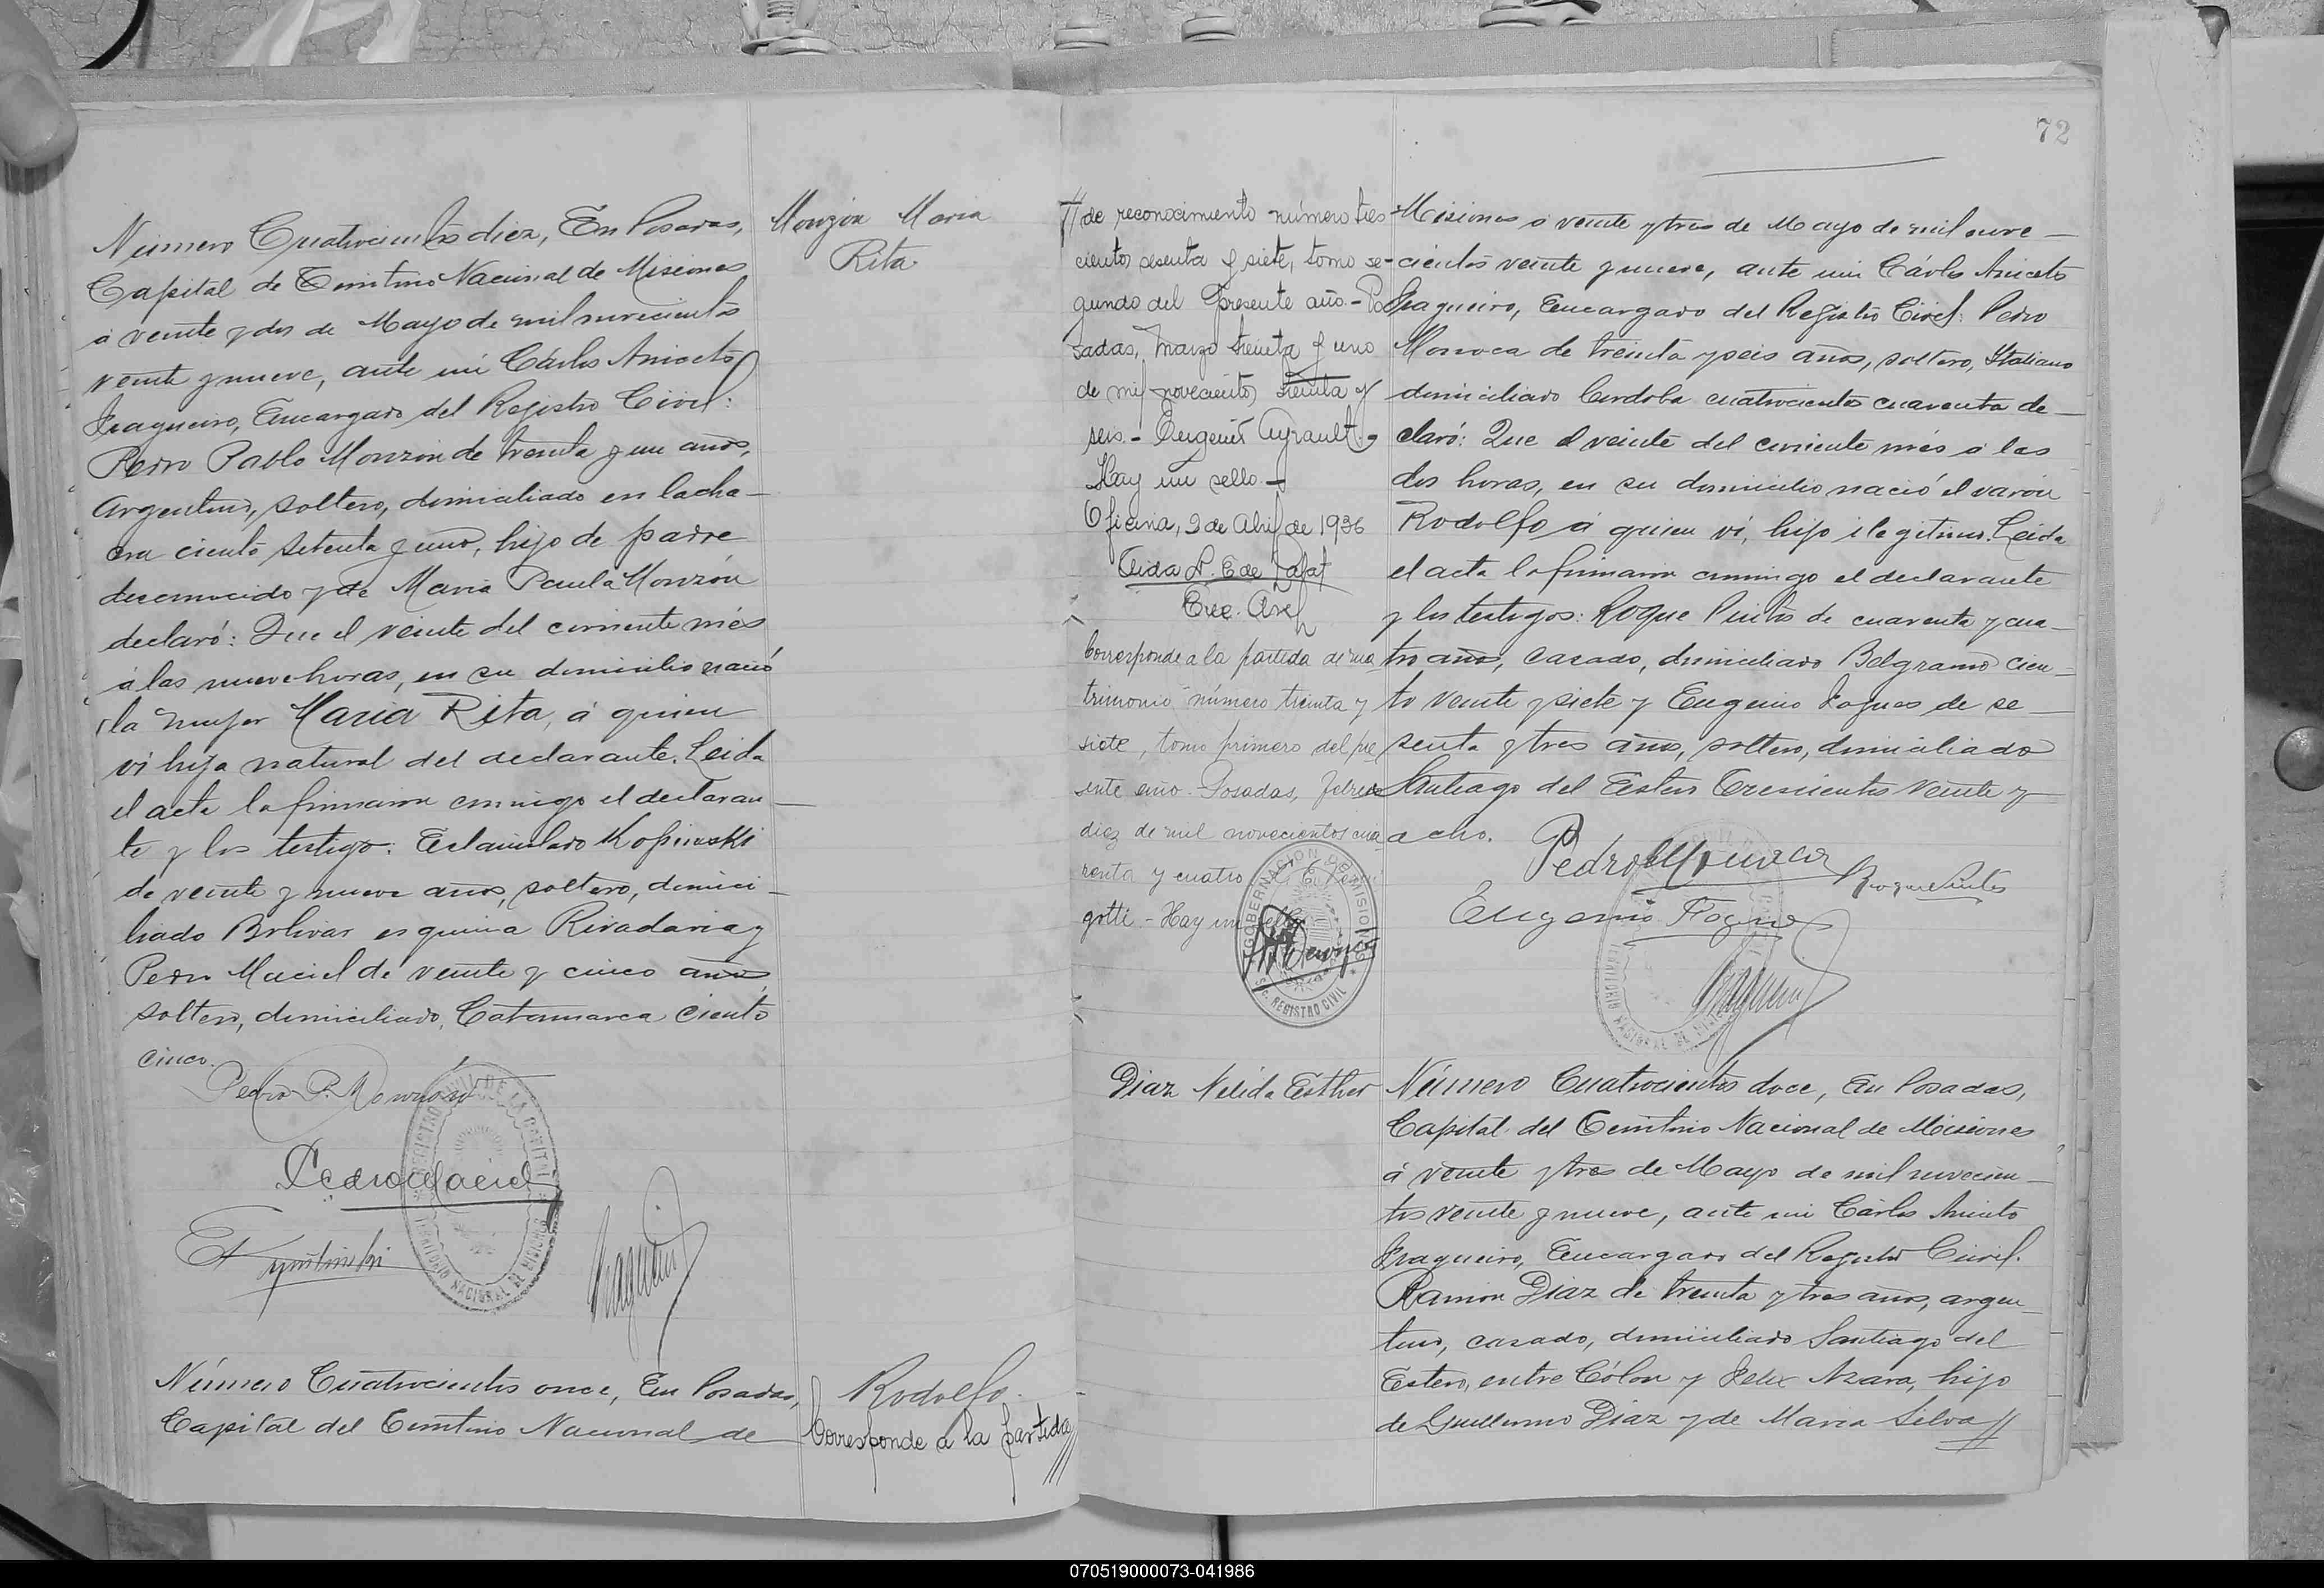 Número Cuatrocientos diez, En Posadas,
Capital de Territorio Nacional de Misiones
á veinte y dos de Mayo de mil novecientos
veinte y nueve, ante mí Cárlos Aniceto
Fragueiro, Encargado del Registro Civil:
Pedro Pablo Monzón de treinta y un años,
Argentino, soltero, domiciliado en lacha-
cra ciento setenta y uno, hijo de padre
desconocido y de Maria Paula Monzón
declaró: Que el veinte del corriente més
á las nueve horas, en su domicilio nació
la mujer Maria Rita, á quien
ví hija natural del declarante. Leida
el acta la firmaron conmigo el declaran-
te y los testigos: Estanislado Kopinoski
de veinte y nueve años, soltero, domici-
liado Bolivar esquina Rivadavia y
Pedro Maciel de veinte y cinco años,
soltero, domiciliado, Catamarca ciento
cinco.
Monzón Maria
Rita
Pedro P. Monzón
Pedro Maciel
REGISTRO CIVIL DE LA CAPITAL
TERRITORIO NACIONAL DE MISIONES
Fragueiro
Número Cuatrocientos once, En Posadas,
Capital del Territorio Nacional de
Rodolfo.
Corresponde a la partida//
72
//de reconocimiento número tres
cientos sesenta y siete, tomo se-
gundo del presente año.- Po
sadas, Marzo treinta y uno
de mil novecientos treinta y
seis.- Eugenio Ayrault.-
Hay un sello.-
Oficina, 2 de Abril de 1936
Enc. Arch
Corresponde a la partida de ma
trimonio número treinta y
siete, tomo primero del pre
sente año. Posadas, febrero
diez de mil novecientos cua
renta y cuatro
gotti - Hay un sello
GOBERNACION DE MISIONES
REGISTRO CIVIL
Misiones á veinte y tres de Mayo de mil nove-
cientos veinte y nueve, ante mí Cárlos Aniceto
Fragueiro, Encargado del Registro Civil: Pedro
Monaca de treinta y seis años, soltero, Italiano
domiciliado Cordoba cuatrocientos cuarenta de-
claró: Que el veinte del corriente més á las
dos horas, en su domicilio nació el varón
Rodolfo á quien ví, hijo ilegitimo. Leida
el acta la firmaron conmigo el declarante
y los testigos: Roque Pintos de cuarenta y cua-
tro años, casado, domiciliado Belgrano cien-
to veinte y siete y Eugenio Fognes de se-
senta y tres años, soltero, domiciliado
Santiago del Estero Trescientos veinte y
ocho.
Pedro Monaca
Roque Pintos
Eugenio
Fragueiro
Diaz Nélida Esther
Número Cuatrocientos doce, En Posadas,
Capital del Territorio Nacional de Misiones
á veinte y tres de Mayo de mil novecien-
tos veinte y nueve, ante mí Cárlos Aniceto
Fragueiro, Encargado del Registro Civil.
Ramon Diaz de treinta y tres años, argen-
tino, casado, domiciliado Santiago del
Estero, entre Cólon y Felix Azara, hijo
de Guillermo Diaz y de Maria Silva//
070519000073-041986